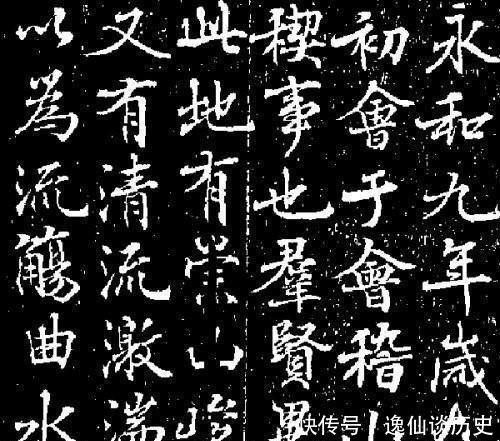 永和九年歲
初會于會稽
稧事也羣賢畢
此地有崇山峻
又有清流激湍
以為流觴曲水
快传号 / 逸仙谈历史